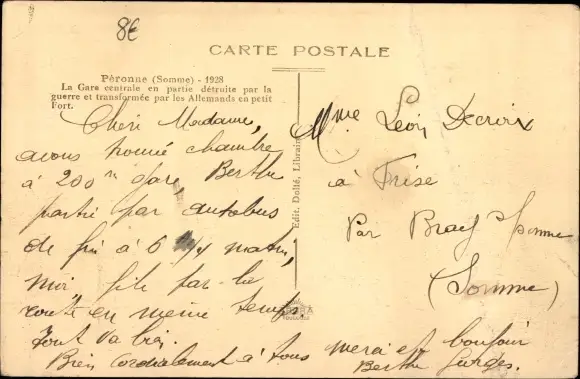 8€
CARTE POSTALE
Péronne (Somme) - 1928
La Gare centrale en partie détruite par la
guerre et transformée par les Allemands en petit
Fort.
Chère Madame,
avons trouvé chambre
à 200 m gare, Berthe
partie par autobus
à 6 matin,
moi, file par la
route en même temps
Tout va bien.
Bien cordialement à tous merci et bonjour
Berthe
Edit. Dolté, Librair
Mme Léon Decroix
à Frise
Par Bray s/ Somme
(Somme)